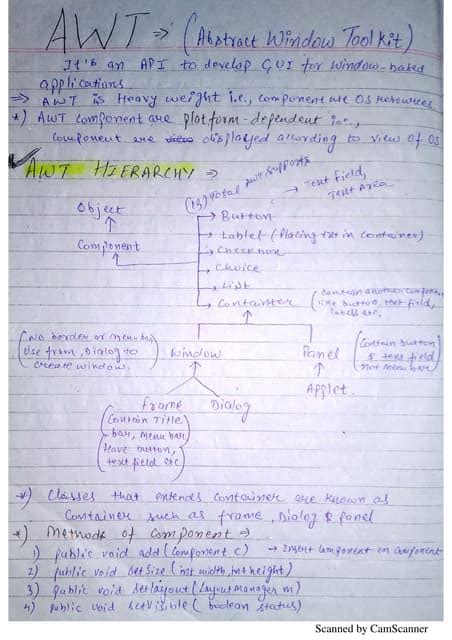 AWT ⇒ (Abstract Window Toolkit)
It's an API to develop GUI for window-based
applications.
⇒ AWT is Heavy weight i.e., component use OS resources
*) AWT component are platform-dependent i.e.,
component are displayed according to view of OS
AWT HIERARCHY ⇒
Total AWT supports
→ Text field,
Text Area
Object
Component
→ Button
→ Lablel (Placing txt in container)
→ Checkbox
→ Choice
→ List
→ Container
(contain another component
like button, text field,
labels etc.
(No border or menu bar
Use fram, Dialog to
create window.)
Window
Panel
(Contain button
& text field
not menu bar)
Applet.
Frame
Dialog
(Contain Title
bar, menu bar
Have button,
text field etc)
*) Classes that extends container are known as
Container such as frame, Dialog & panel
*) Methods of Component ⇒
1) public void add (Component c) → Insert component on component
2) public void setSize (int width, int height)
3) public void setlayout (LayoutManager m)
4) public void setvisible (boolean status)
Scanned by CamScanner